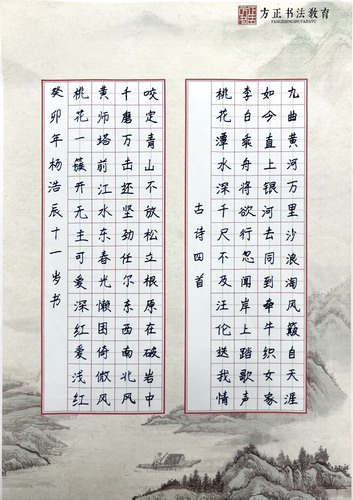 方正书法教育
FANGZHENGSHUFAJIAOYU
九曲黄河万里沙浪淘风簸自天涯
如今直上银河去同到牵牛织女家
李白乘舟将欲行忽闻岸上踏歌声
桃花潭水深千尺不及汪伦送我情
古诗四首
咬定青山不放松立根原在破岩中
千磨万击还坚劲任尔东西南北风
黄师塔前江水东春光懒困倚微风
桃花一簇开无主可爱深红爱浅红
癸卯年杨浩辰十一岁书